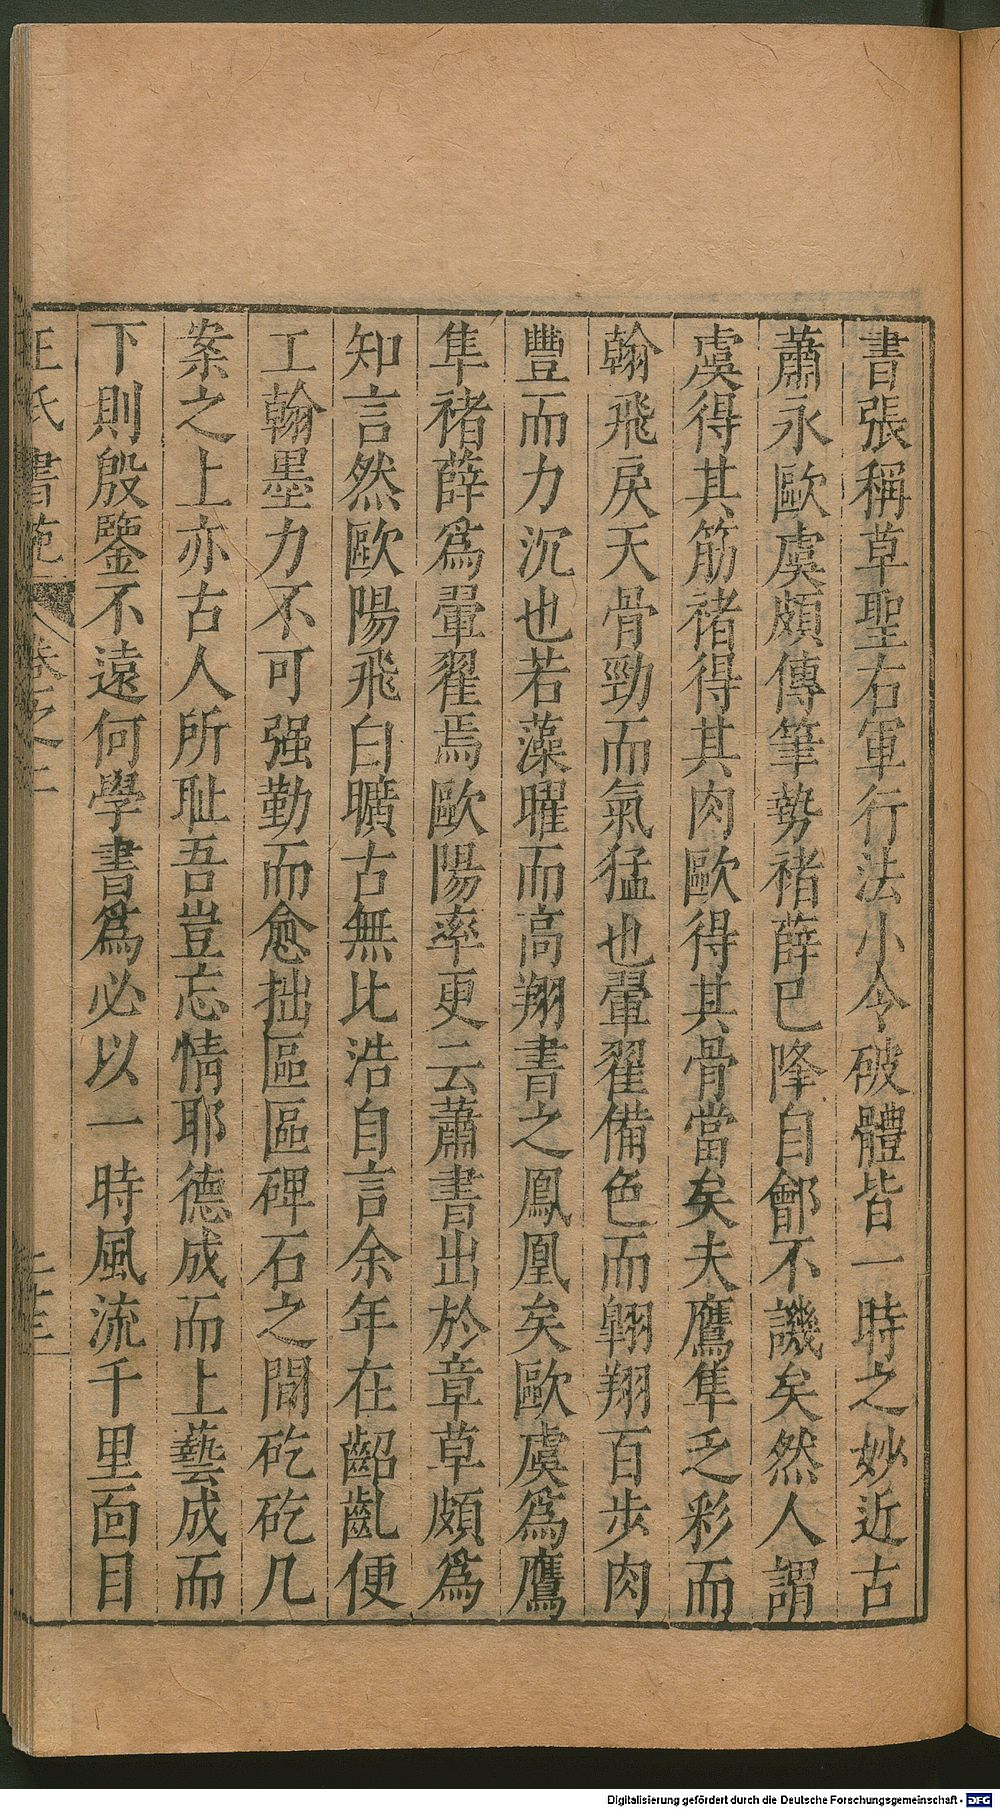 書張稱草聖右軍行法小令破體皆一時之妙近古
蕭永歐虞頗傳筆勢褚薛已降自鄶不譏矣然人謂
虞得其筋褚得其肉歐得其骨當矣夫鷹隼乏彩而
翰飛戾天骨勁而氣猛也翬翟備色而翱翔百步肉
豐而力沉也若藻曜而高翔書之鳳凰矣歐虞爲鷹
隼褚薛爲翬翟焉歐陽率更云蕭書出於章草頗爲
知言然歐陽飛白曠古無比浩自言余年在齠齓便
工翰墨力不可强勤而愈拙區區碑石之間矻矻几
案之上亦古人所耻吾豈忘情耶德成而上藝成而
下則殷鑒不遠何學書爲必以一時風流千里面目
王氏書苑 卷之二
Digitalisierung gefördert durch die Deutsche Forschungsgemeinschaft - DFG